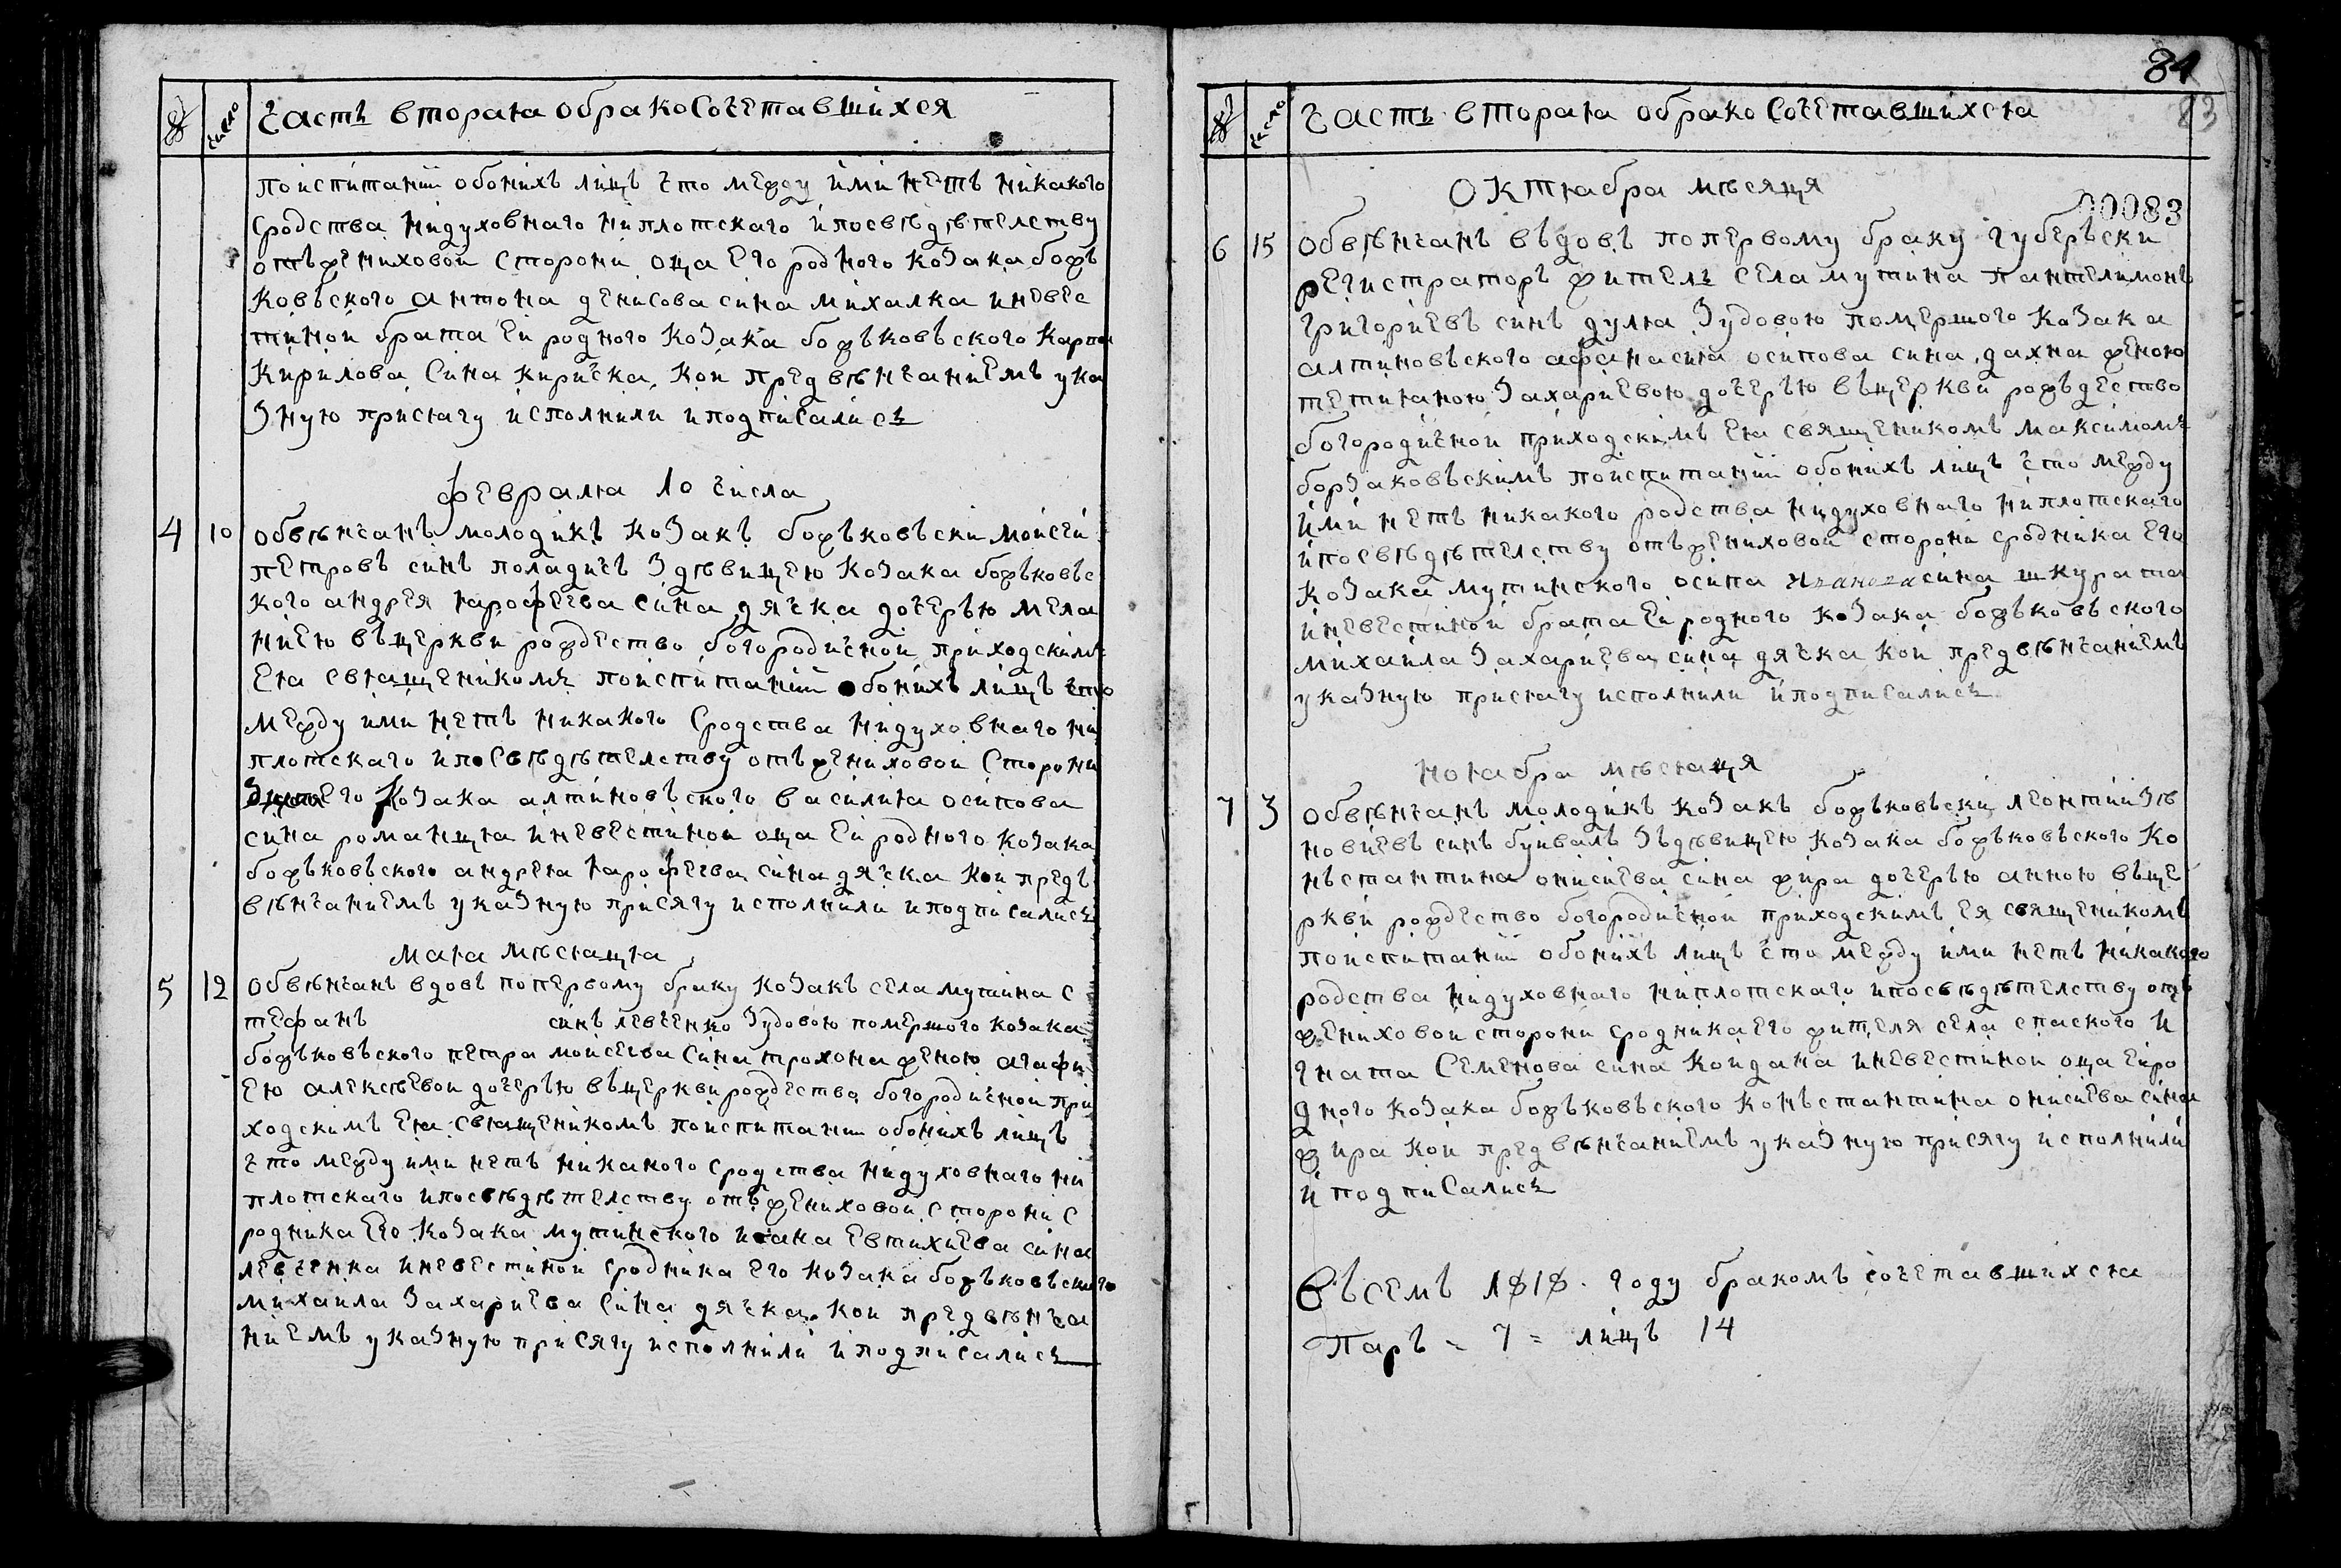 № число Часть вторая обрако Сочетавшихся
поиспитаніи обоихъ лицъ что между ими нетъ никакого
сродства нидуховнаго ниплотскаго ипосвѣдѣтелству
отъжениховой Сторони оца Его родного козака божъ
ковъского антона денисова сина михалка иневес
тиной брата Ей родного козака божъковъского Карпа
Кирилова Сина кирѣчка, Кои предвѣнчаниемъ ука
зную присягу исполнили иподписались
февраля 10 числа
4 10 обвѣнчанъ молодикъ козакъ божъковъски моисей
петровъ синъ поладичъ здѣвицею козака божъковъс
кого андрея ярофеева сина дячка дочерью мела
ниею въцеркви рождество богородичной приходскимъ
Ея священикомъ поиспитаніи обоихъ лицъ что
между ими нетъ никакого Сродства нидуховнаго ни
плотскаго ипоСвѣдѣтелству отъжениховой Сторони
Его козака алтиновъского василия осипова
сина романця иневестиной оца Ей родного козака
божъковъского андрея ярофеева сина дячка кои предъ
вѣнчаниемъ указную присягу исполнили иподписались
мая мѣсяця
5 12 обвѣнчанъ вдовъ попервому браку козакъ села мутина С
тефанъ синъ левченко зудовою помершого козака
божъковъского петра моисеева Сина трохона женою агафи
Ею алексѣевой дочерью въцеркви рождество богородичной при
ходскимъ Ея священикомъ поиспитании обоихъ лицъ
что между ими нетъ никакого сродства нидуховнаго ни
плотскаго ипосвѣдѣтелству отъжениховой Сторони С
родника Его козака мутинского ивана Евтихиева сина
левченка иневестиной сродника Его козака божъковъского
михаила захариева Сина дячка. кои предвѣнча
ниемъ указную присягу исполнили иподписались
84
83
№ число Часть вторая обрако Сочетавшихся
Октября мѣсяця
00083
6 15 обвѣнчанъ въдовъ попервому браку губеръски
регистраторъ житель села мутина пантелимонъ
григориевъ синъ дуля зудовою помершого козака
алтиновъского афанасия осипова сина, дахна женою
тетияною захариевою дочерью въцеркви рожъдество
богородичной приходскимъ Ея священикомъ максимомъ
борзаковъскимъ поиспитаніи обоихъ лицъ что между
ими нетъ никакого родства нидуховнаго ниплотскаго
ипосвѣдѣтелству отъжениховой сторони сродника Его
козака мутинского осипа иванова сина шкурата
иневестиной брата Ей родного козака божъковъского
михаила захариева сина дячка кои предвѣнчаниемъ
указную присягу исполнили иподписались
ноября мѣсяця
7 3 обвѣнчанъ молодикъ козакъ божъковъски леонтий зѣ
новиевъ синъ буйвалъ зъдѣвицею козака божъковъского Ко
нъстантина онисиева сина жира дочерью анною въце
ркви рождество богородичной приходскимъ Ея священикомъ
поиспитаніи обоихъ лицъ что между ими нетъ никакого
родства нидуховнаго ниплотскаго ипосвѣдѣтелству отъ
жениховой сторони сродника Его жителя села спаского и
гната Семенова сина Койдана иневестиной оца Ей ро
дного козака божъковъского конъстантина онисиева сина
жира кои предвѣнчаниемъ указную присягу исполнили
и подписались
Въсемъ 1818 году бракомъ сочетавшихся
Паръ = 7 = лицъ 14